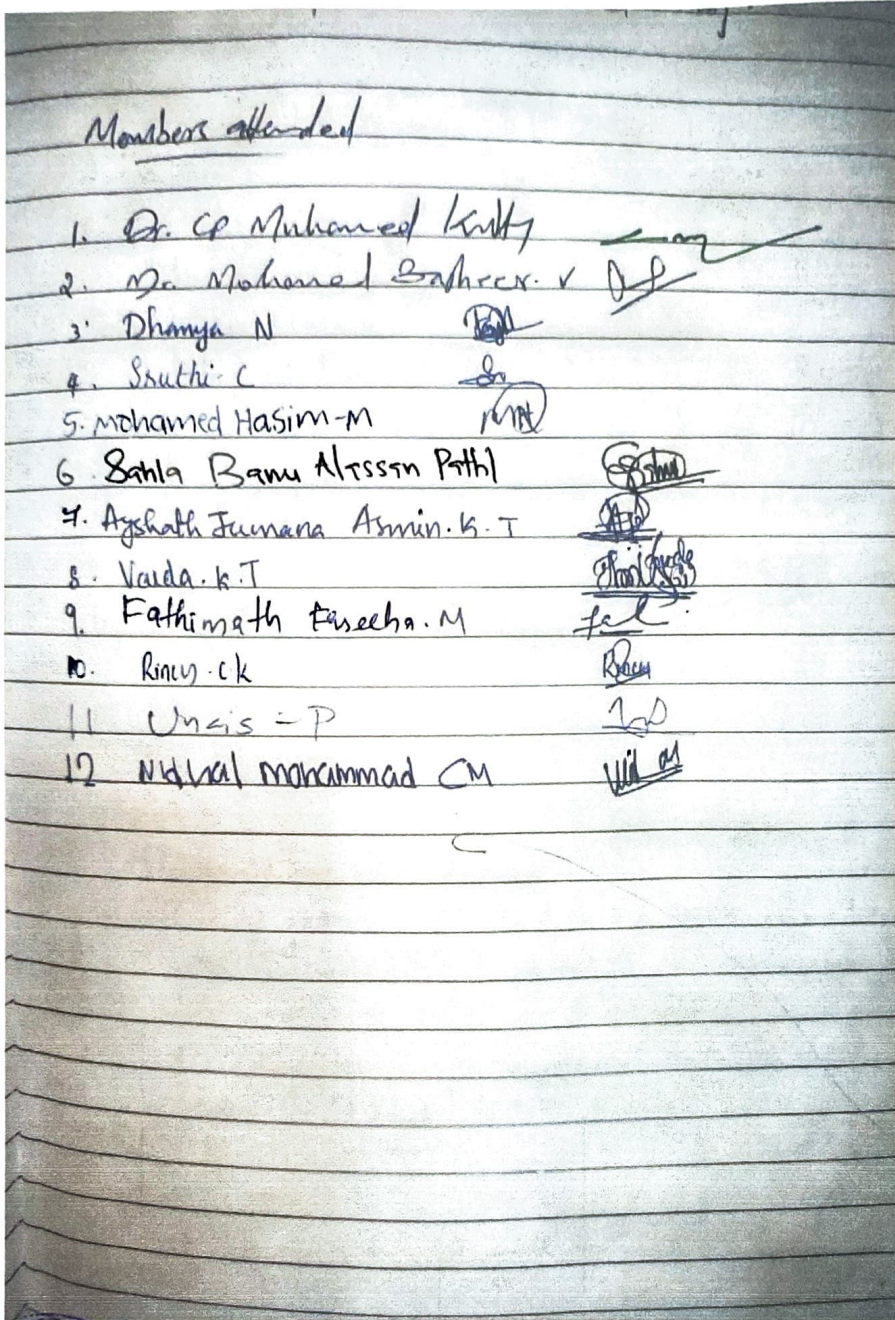 Members attended
1. Dr. CP Muhamed Kutty
2. Dr. Mohamed Basheer. V
3. Dhanya N
4. Sruthi. C
5. Mohamed Hasim-M
6 Sahla Banu Alassan Pathl
7. Ayshath Jumana Asmin. K. T
8. Varda. K. T
9. Fathimath Faseeha. M
10. Rincy. C K
11 Unais - P
12 Nidhal mohammad CM